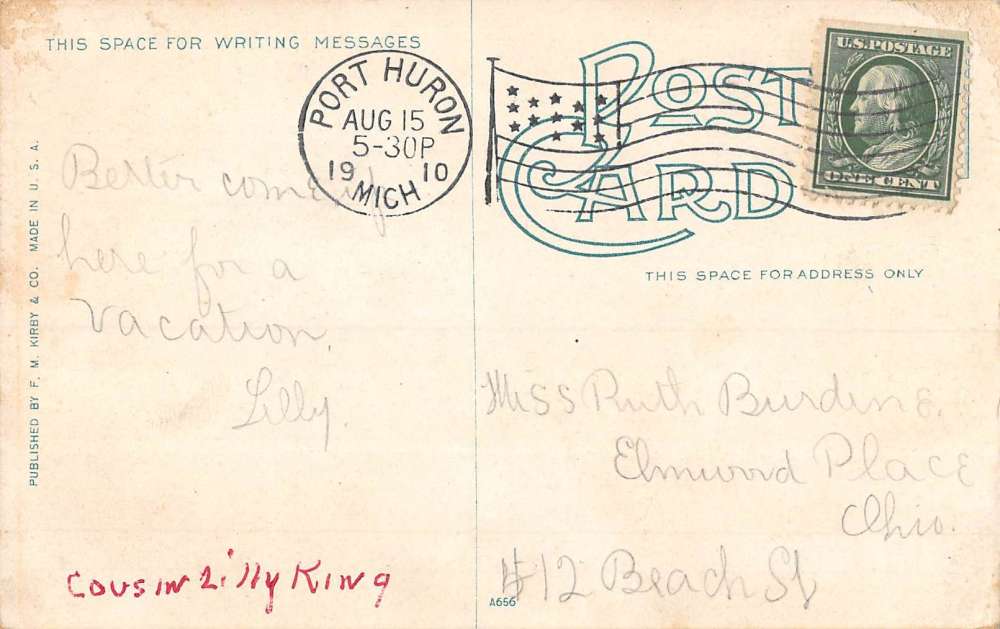 THIS SPACE FOR WRITING MESSAGES
PORT HURON
AUG 15
5-30P
19 10
MICH
POST
CARD
U.S. POSTAGE
ONE CENT
THIS SPACE FOR ADDRESS ONLY
PUBLISHED BY F. M. KIRBY & CO. MADE IN U. S. A.
Better come up
here for a
vacation.
Lilly.
Miss Ruth
Elmwood Place
Ohio.
#12 Beach St
Cousin Lilly King
A656